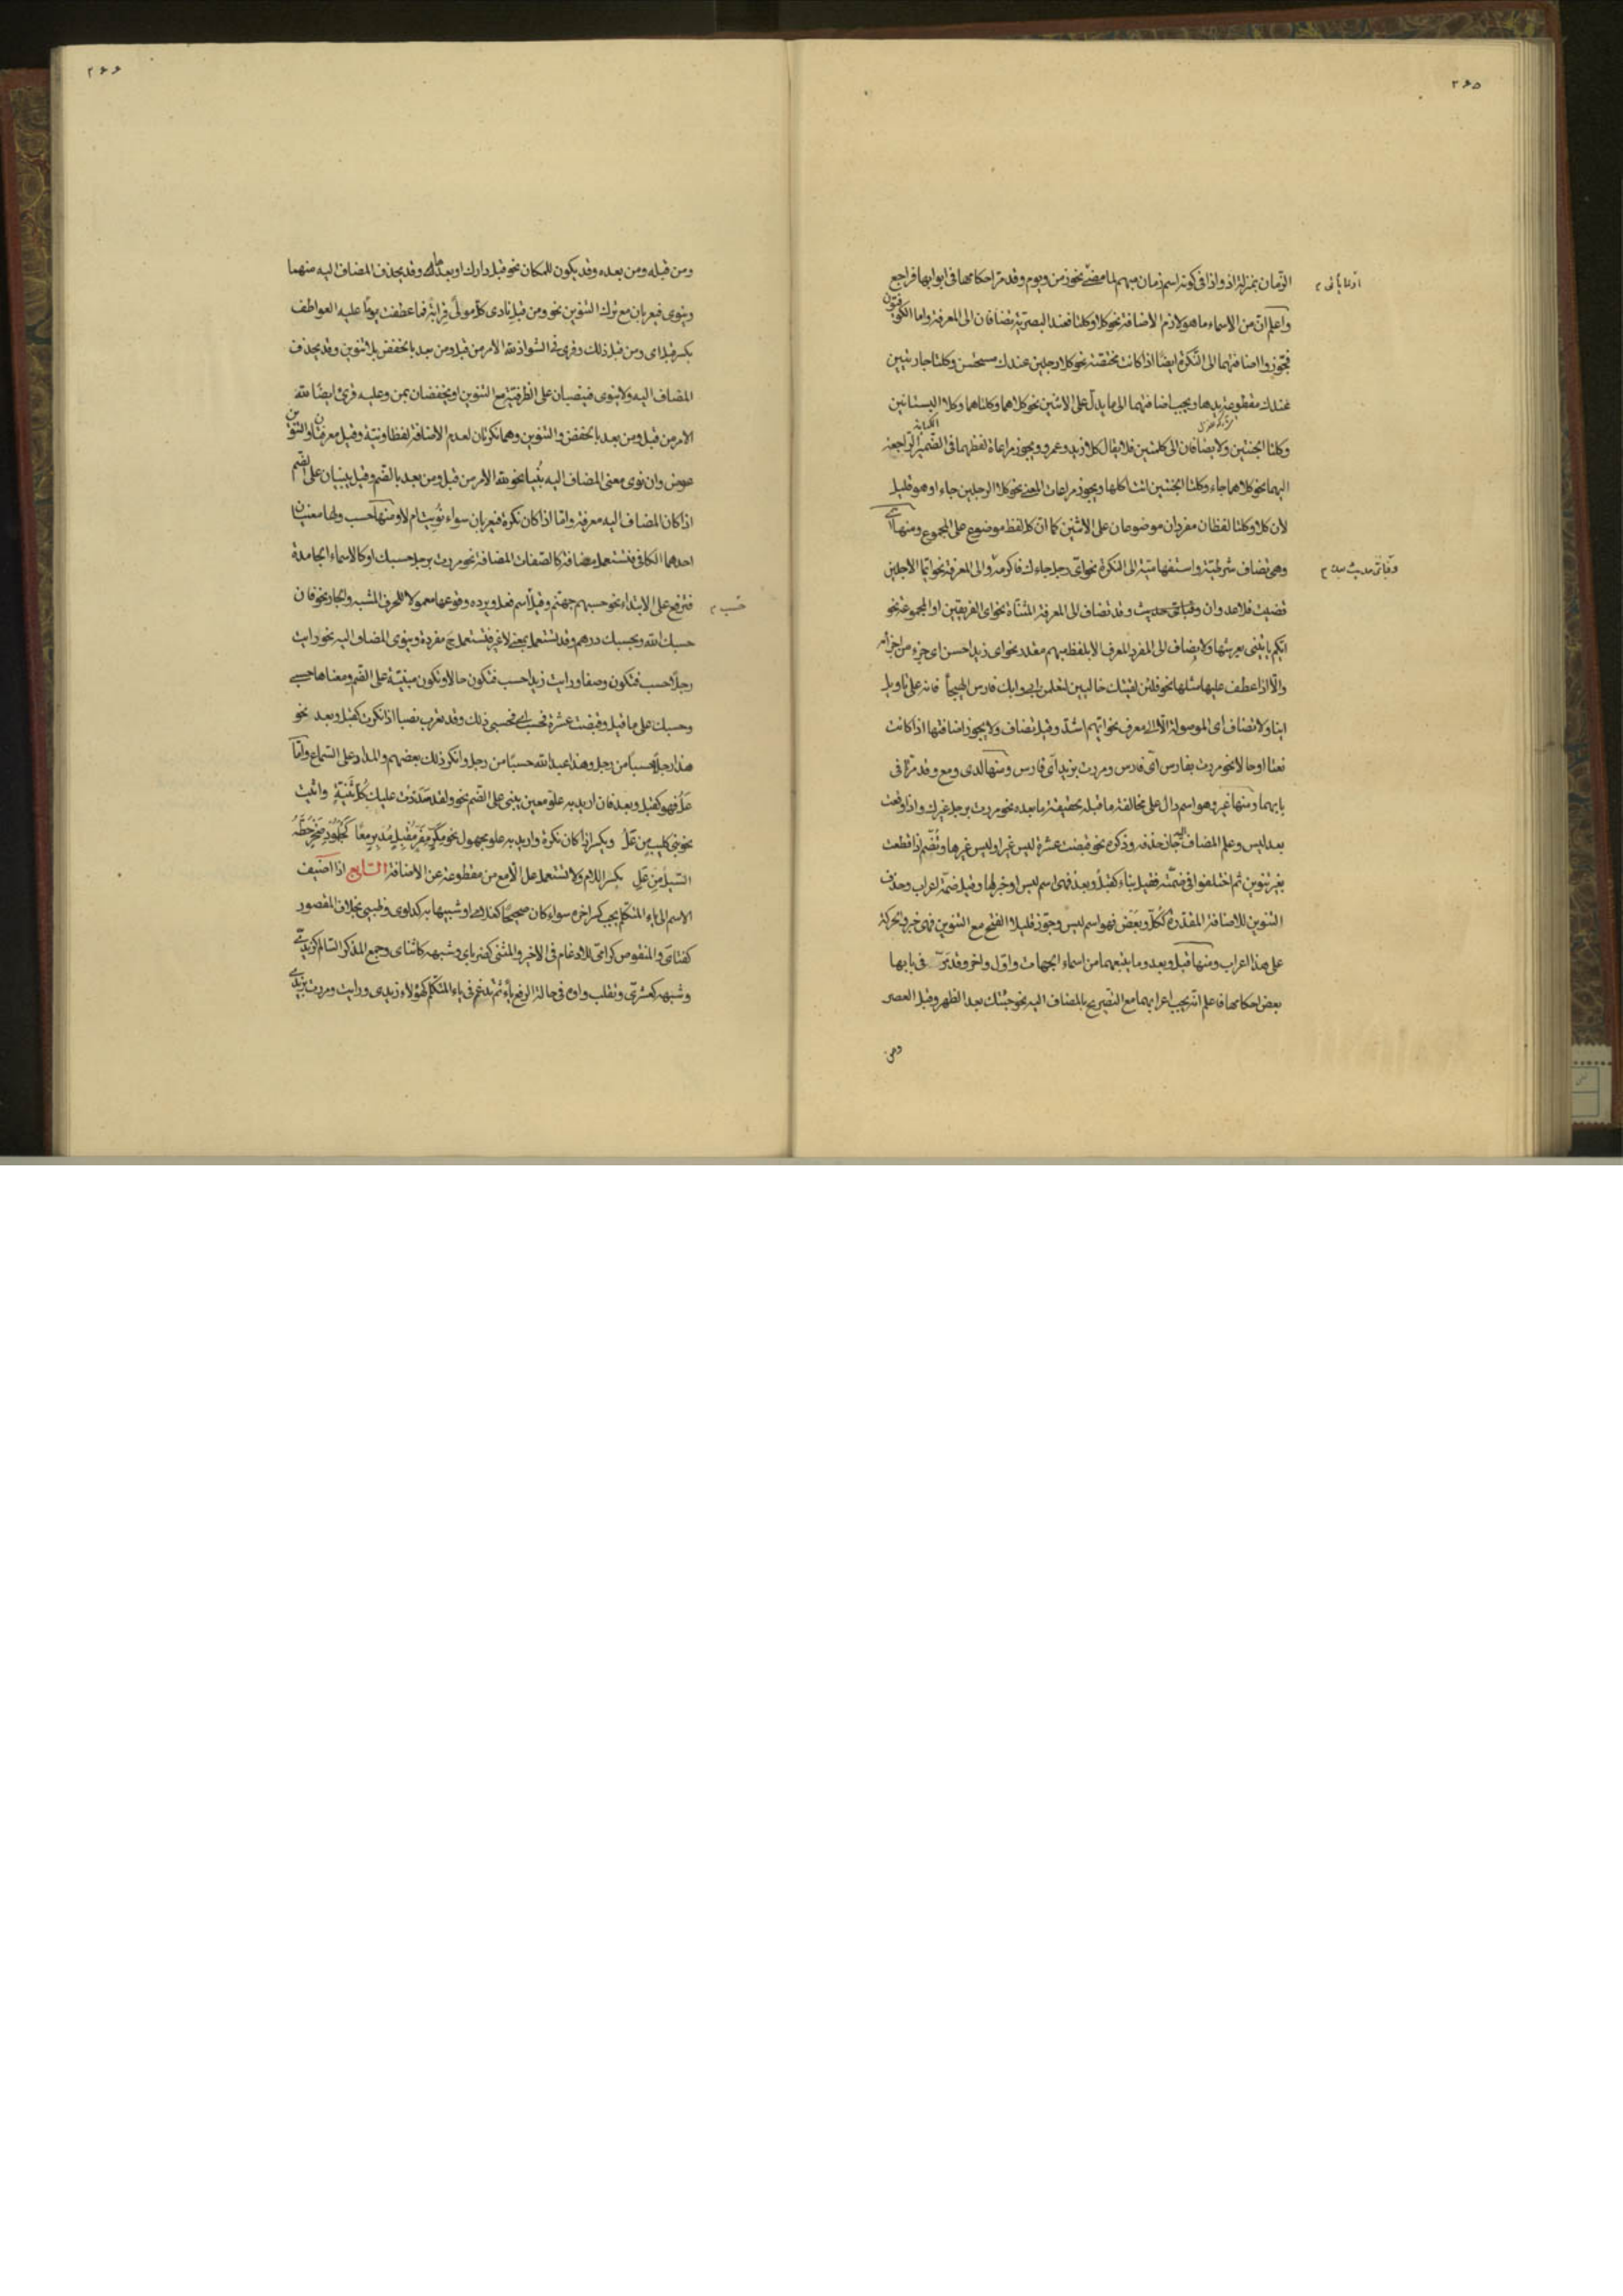 ٢٦٥
الزمان بمنزلة اذ واذا فى كونه اسم زمان مبهم لما مضى نحو زمن ويوم وقد مر احكامها فى ابوابها فراجع
واعلم ان من الاسماء ما هو لازم الاضافة نحو كلا وكلتا فعند البصرية تضافان الى المعرفة واما الكوفيون
فجوزوا اضافتهما الى النكرة ايضا اذا كانت مختصة نحو كلا رجلين عندك مستحسن وكلتا جاريتين
عندك مقطوعة يدها ويجب اضافتهما الى ما يدل على الاثنين نحو كلاهما وكلتاهما وكلا البستانين
وكلتا الجنتين ولا يضافان الى كلمتين فلا يقال كلا زيد وعمرو ويجوز مراعاة لفظهما فى الضمير الراجعة
اليهما نحو كلاهما جاء وكلتا الجنتين اتت اكلها ويجوز مراعات المعنى نحو كلا الرجلين جاءا وهو قليل
لان كلا وكلتا لفظان مفردان موضوعان على الاثنين كما ان كلا لفظ موضوع على المجموع ومنها اى
وهى تضاف شرطية واستفهامية الى النكرة نحو اى رجل جاءك فاكرمه والى المعرفة نحو ايما الاجلين
قضيت فلا عدوان و فباى حديث وقد تضاف الى المعرفة المثناة نحو اى الفريقين او المجموعة نحو
ايكم ياتينى بعرشها ولا يضاف الى المفرد المعرف الا بلفظ مبهم مقدر نحو اى زيد احسن اى جزء من اجزائه
والا اذا عطف عليها مثلها نحو فلئن لقيتك خاليين لتعلمن ايى وايك فارس الهيجا فانه على تاويل
اينا ولا تضاف اى الموصولة الا الى معرف نحو ايهم اشد وقيل تضاف ولا يجوز اضافتها اذا كانت
نعتا او حالا نحو مررت بفارس اى فارس ومررت بزيد اى فارس ومنها لدى ومع وقد مرا فى
بابهما ومنها غير وهو اسم دال على مخالفة ما قبله بحقيقة ما بعده نحو مررت برجل غيرك واذا وقعت
بعد ليس وعلم المضاف اليه جاز حذفه وذكره نحو قبضت عشرة ليس غير او ليس غيرها وتضم اذا قطعت
بغير تنوين ثم اختلفوا فى ضمته فقيل بناء كقبل وبعد فهى اسم ليس او خبرها وقيل ضمة اعراب وحذف
التنوين للاضافة المقدرة ككل وبعض فهو اسم ليس وجوز قليلا الفتح مع التنوين فهى خبر وتحركة
على هذا اعراب ومنها قبل وبعد وما يتبعهما من اسماء الجهات واول واخر وقد مر فى بابها
بعض احكامها فاعلم انه يجب اعرابهما مع التصريح بالمضاف اليه نحو جئتك بعد الظهر وقبل العصر
ومن
٢٦٦
ومن قبله ومن بعده وقد يكون للمكان نحو قبل دارك او بعد دارك وقد يحذف المضاف اليه منهما
وينوى فيعربان مع ترك التنوين نحو ومن قبل نادى كل مولى قرابة فما عطفت يوما عليه العواطف
بكسر قبل اى ومن قبل ذلك وقرئ فى الشواذ لله الامر من قبل ومن بعد بالخفض بلا تنوين وقد يحذف
المضاف اليه ولا ينوى فينصبان على الظرفية مع التنوين او يخفضان بمن وعليه قرئ ايضا لله
الامر من قبل ومن بعد بالخفض والتنوين وهما نكرتان لعدم الاضافة لفظا ونية وقيل معرفتان والتنوين
عوض وان نوى معنى المضاف اليه بنيا نحو لله الامر من قبل ومن بعد بالضم وقيل يبنيان على الضم
اذا كان المضاف اليه معرفة واما اذا كان نكرة فيعربان سواء نويت ام لا ومنها حسب ولها معنيان
احدهما الكافى فتستعمل مضافة كالصفات المضافة نحو مررت برجل حسبك او كالاسماء الجامدة
فترفع على الابتداء نحو حسبهم جهنم وقيل اسم فعل ويرده وقوعها معمولا للحرف المشبه والجار نحو فان
حسب
حسبك الله وبحسبك درهم وقد تستعمل بمعنى لا غير فتستعمل ح مفردة وينوى المضاف اليه نحو رايت
رجلا حسب فتكون وصفا ورايت زيدا حسب فتكون حالا وتكون مبنية على الضم ومعناها حسبى
وحسبك على ما قيل وقبضت عشرة فحسب اى فحسبى ذلك وقد تعرب نصبا اذا نكرت كقبل وبعد نحو
هذا رجل حسبا من رجل وهذا عبد الله حسبا من رجل وانكر ذلك بعضهم والمدار على السماع واما
عل فهو كقبل وبعد فان اريد به علو معين يبنى على الضم نحو ولقد سددت عليك كل ثنية واتيت
نحو بنى كليب من عل ويكسر اذا كان نكرة واريد به علو مجهول نحو مكر مفر مقبل مدبر معا كجلمود صخر حطه
السيل من عل بكسر اللام ولا تستعمل عل الا مع من مقطوعة عن الاضافة السابع اذا اضيف
الاسم الى ياء المتكلم يجب كسر اخره سواء كان صحيحا كغلامى او شبيها به كدلوى وظبيى بخلاف المقصور
كفتاى والمنقوص كرامى للادغام فى الاخير والمثنى كضرباى وشبهه كاثناى وجمع المذكر السالم كزيدى
وشبهه كعشرى وتقلب واوه فى حالة الرفع ياء ثم تدغم فى ياء المتكلم كهؤلاء زيدى ورايت ومررت بزيدى